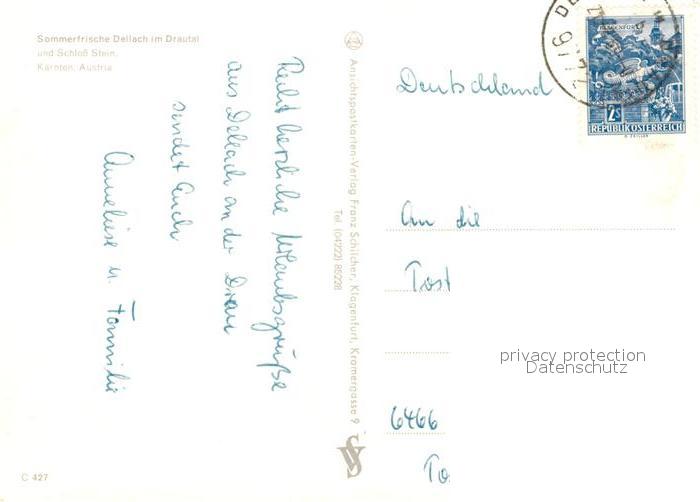 Sommerfrische Dellach im Drautal
und Schloß Stein,
Kärnten, Austria
Recht herzliche Urlaubsgrüße
aus Dellach an der Drau
sendet Euch
Anneliese u. Familie
Ansichtspostkarten-Verlag Franz Schilcher, Klagenfurt, Kramergasse 9
Tel. (04222) 85228
Deutschland
An die
Post
6466
To
2s
REPUBLIK ÖSTERREICH
privacy protection
Datenschutz
C 427